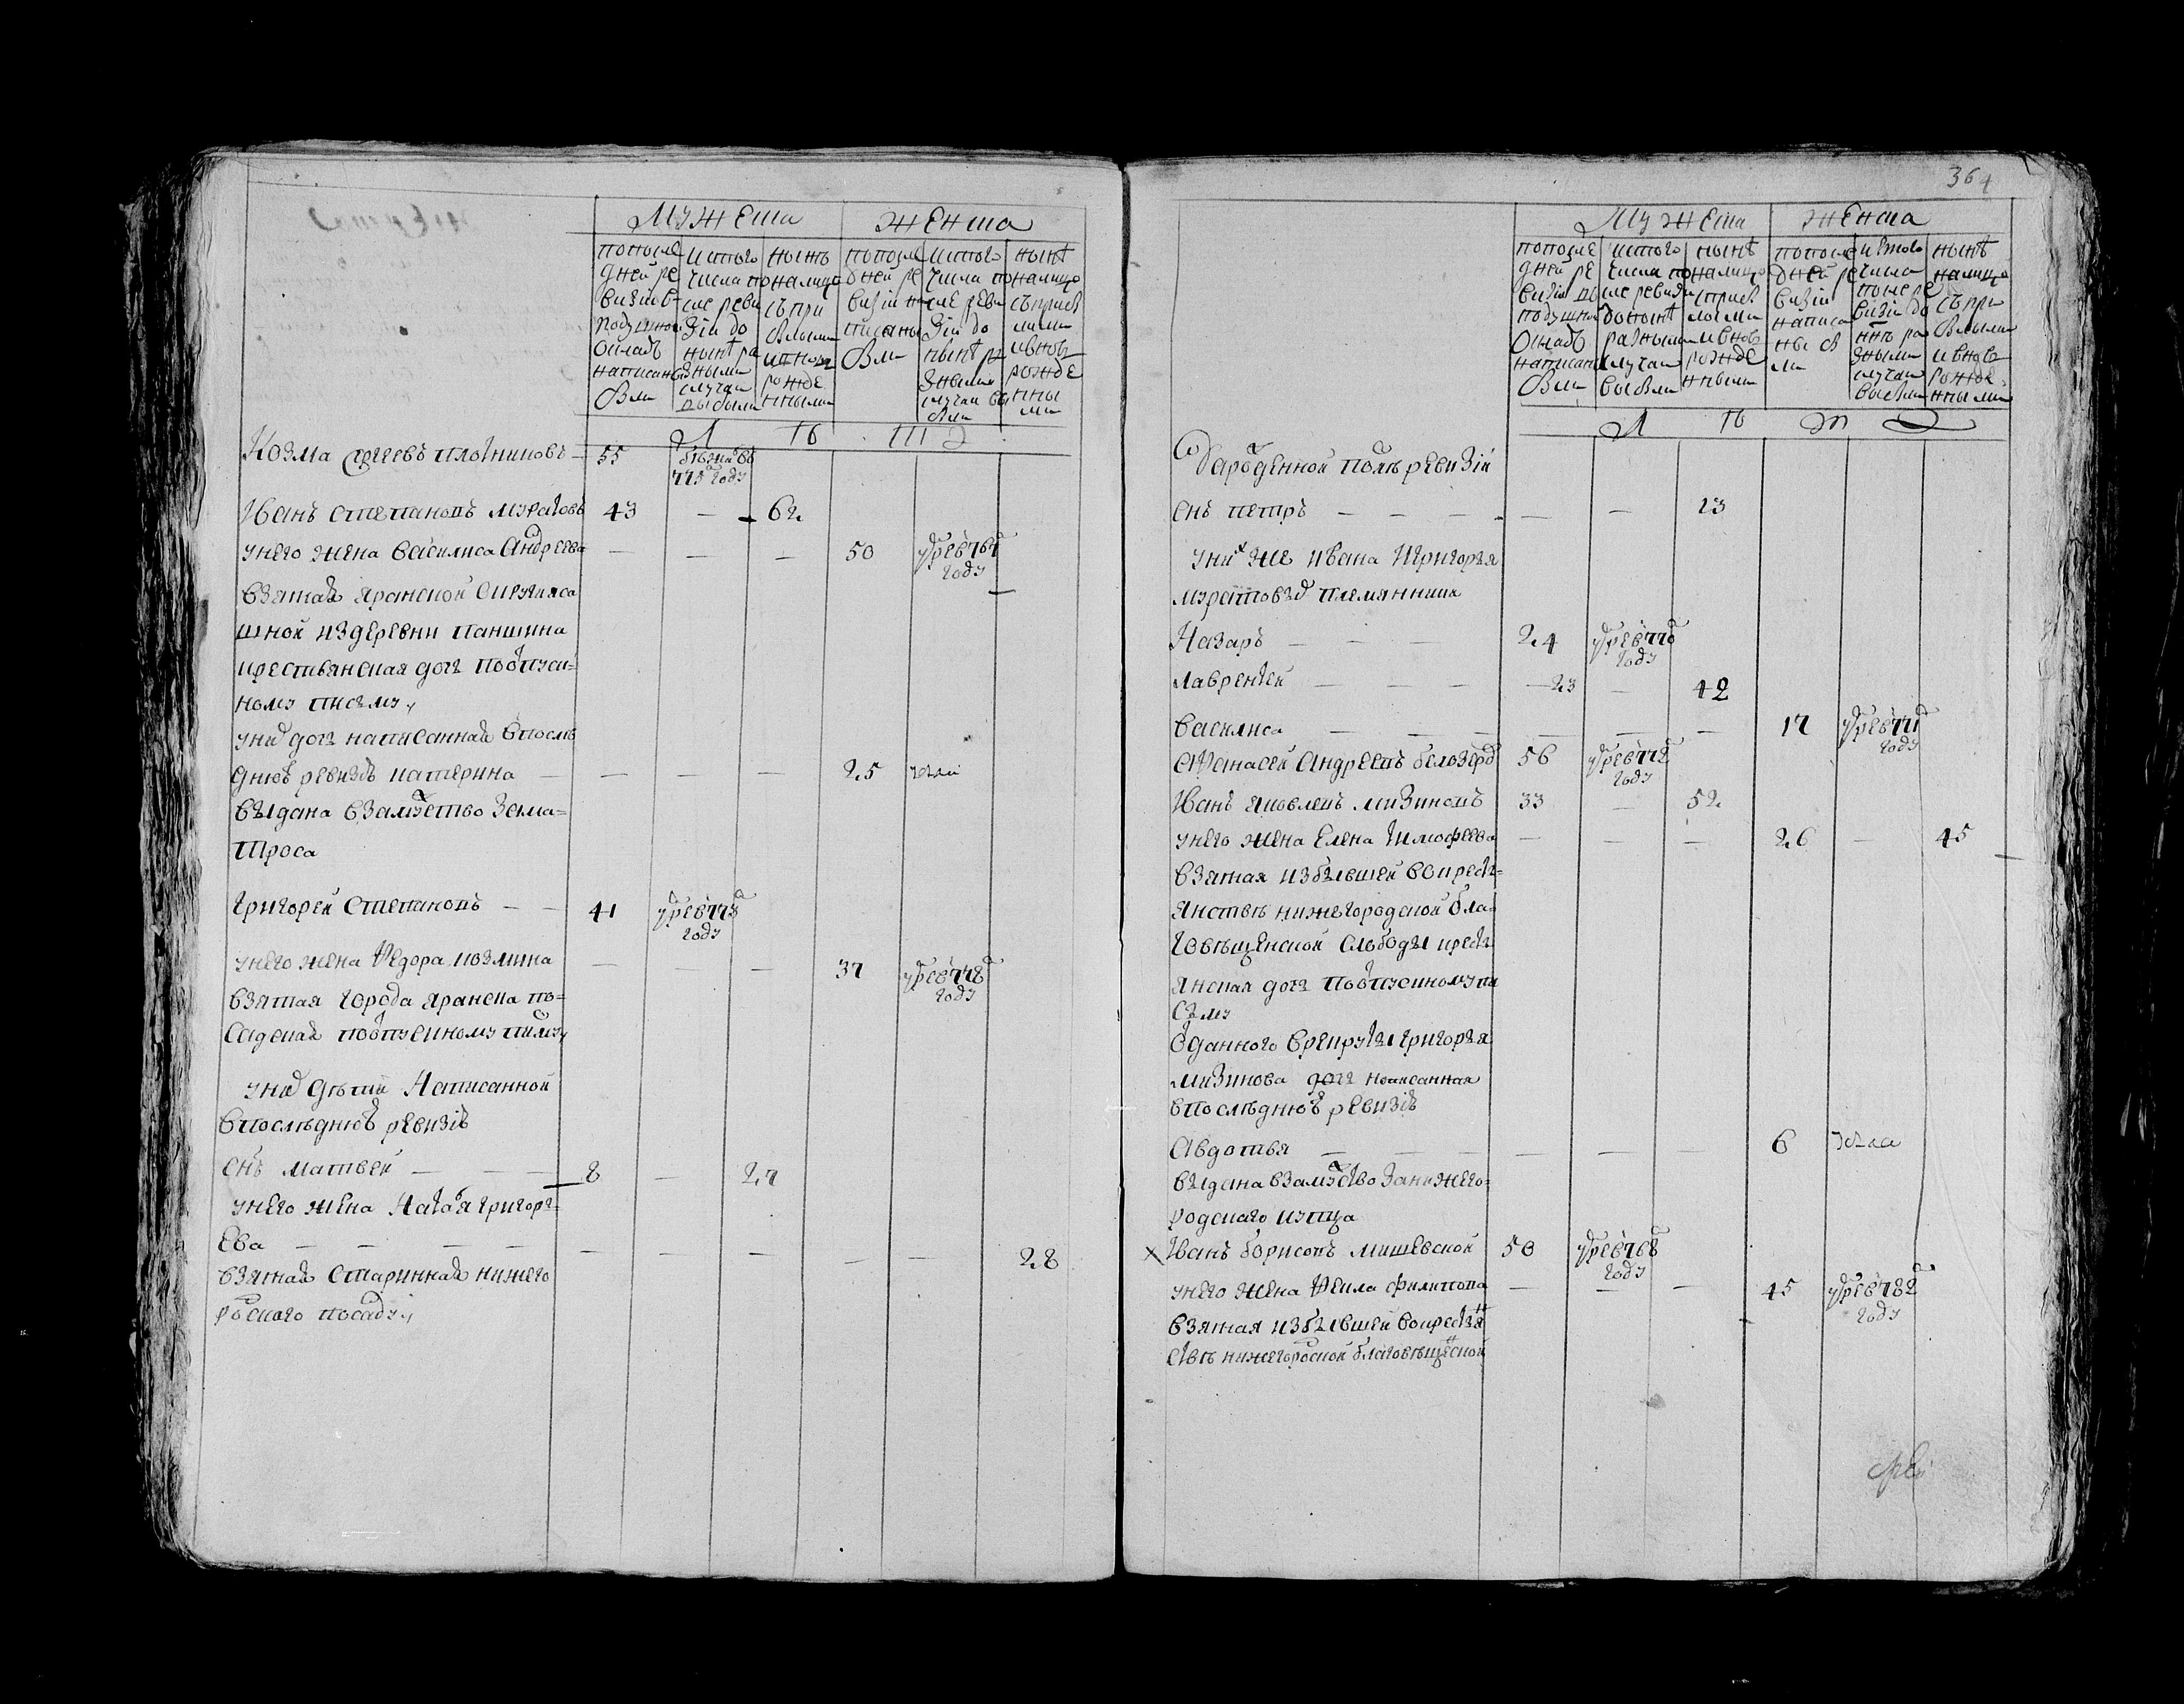 Мужеска
Женска
попосле
дней ре
визии в
подушной
окладъ
написан
были
истого
числа по
сле реви
зіи до
нынѣ ра
зными
случаи
выбыли
нынѣ
налицо
съ при
былыми
ивновь
рожде
нными
попосле
дней ре
визіи на
писаны
были
истого
числа по
сле реви
зіи до
нынѣ ра
зными
случаи вы
были
нынѣ
налицо
съприбы
лыми
ивновь
рожде
нны
ми
Л Ѣ Т Э
Козма Сергеевъ плотниковъ — 55
бѣжавъ
775 году
Иванъ Степановъ муратовъ 43 — 62
унего жена Василиса Андреева — — — 50
умре въ 767
году
взятая яранской округи яса
шной издеревни паншина
крестьянская дочь поотпуск=
ному писму,
уних дочь написанная впослѣ
днюю ревизію катерина — — — — 25
выдана взамужство зама=
троса
Григорей Степановъ — — 41
умре въ 773
году
унего жена Федора козмина — — — 37
умре въ 778
году
взятая города яранска по=
садская поотпускному писму,
уних дѣтей написанной
впослѣднюю ревизію
снъ матвей — — — 8 — 27
унего жена Наталя григорь=
ева — — — — — — — — — 28
взятая старинная нижего
родского посаду,
364
Мужеска
Женска
попосле
дней ре
визіи въ
подушной
окладъ
написаны
были
истого
числа по
сле ревизіи
до нынѣ
разными
случаи
выбыли
нынѣ
налицо
сприбы
лыми
ивновь
рожде
нными
попосле
дней ре
визіи
написа
ны бы
ли
истого
числа
после ре
визіи до
нынѣ ра
зными
случаи
выбыли
нынѣ
налицо
съ при
былыми
ивновь
рожде
нными
Л Ѣ Т Э
рожденной послѣ ревизіи
снъ петръ — — — — — — 13
уних же ивана игригорья
муратовых племянники
Назаръ — — — 24
умре въ 770
году
лаврентей — — — 23 — 42
василиса — — — — — — 17
умре въ 771
году
Афанасей Андреевъ белозеров 56
умре въ 772
году
Иванъ яковлевъ мизиновъ 33 — 52
унего жена Елена тимофеева — — — 26 — 45
взятая избывшей вокресть=
янствѣ нижегородской бла=
говѣщенской слободы кресть
янская дочь поотпускному пи
сьму
отданного врекруты григорья
мизинова дочь написанная
впослѣднюю ревизію
Авдотья — — — — — 6
выдана взамужство занижего=
родского купца
х Иванъ борисовъ мишевской 50
умре въ 768
году
унего жена Фекла филипова — — — 45
умре въ 782
году
взятая избывшей вокрестья
ствѣ нижегородской благовѣщенской